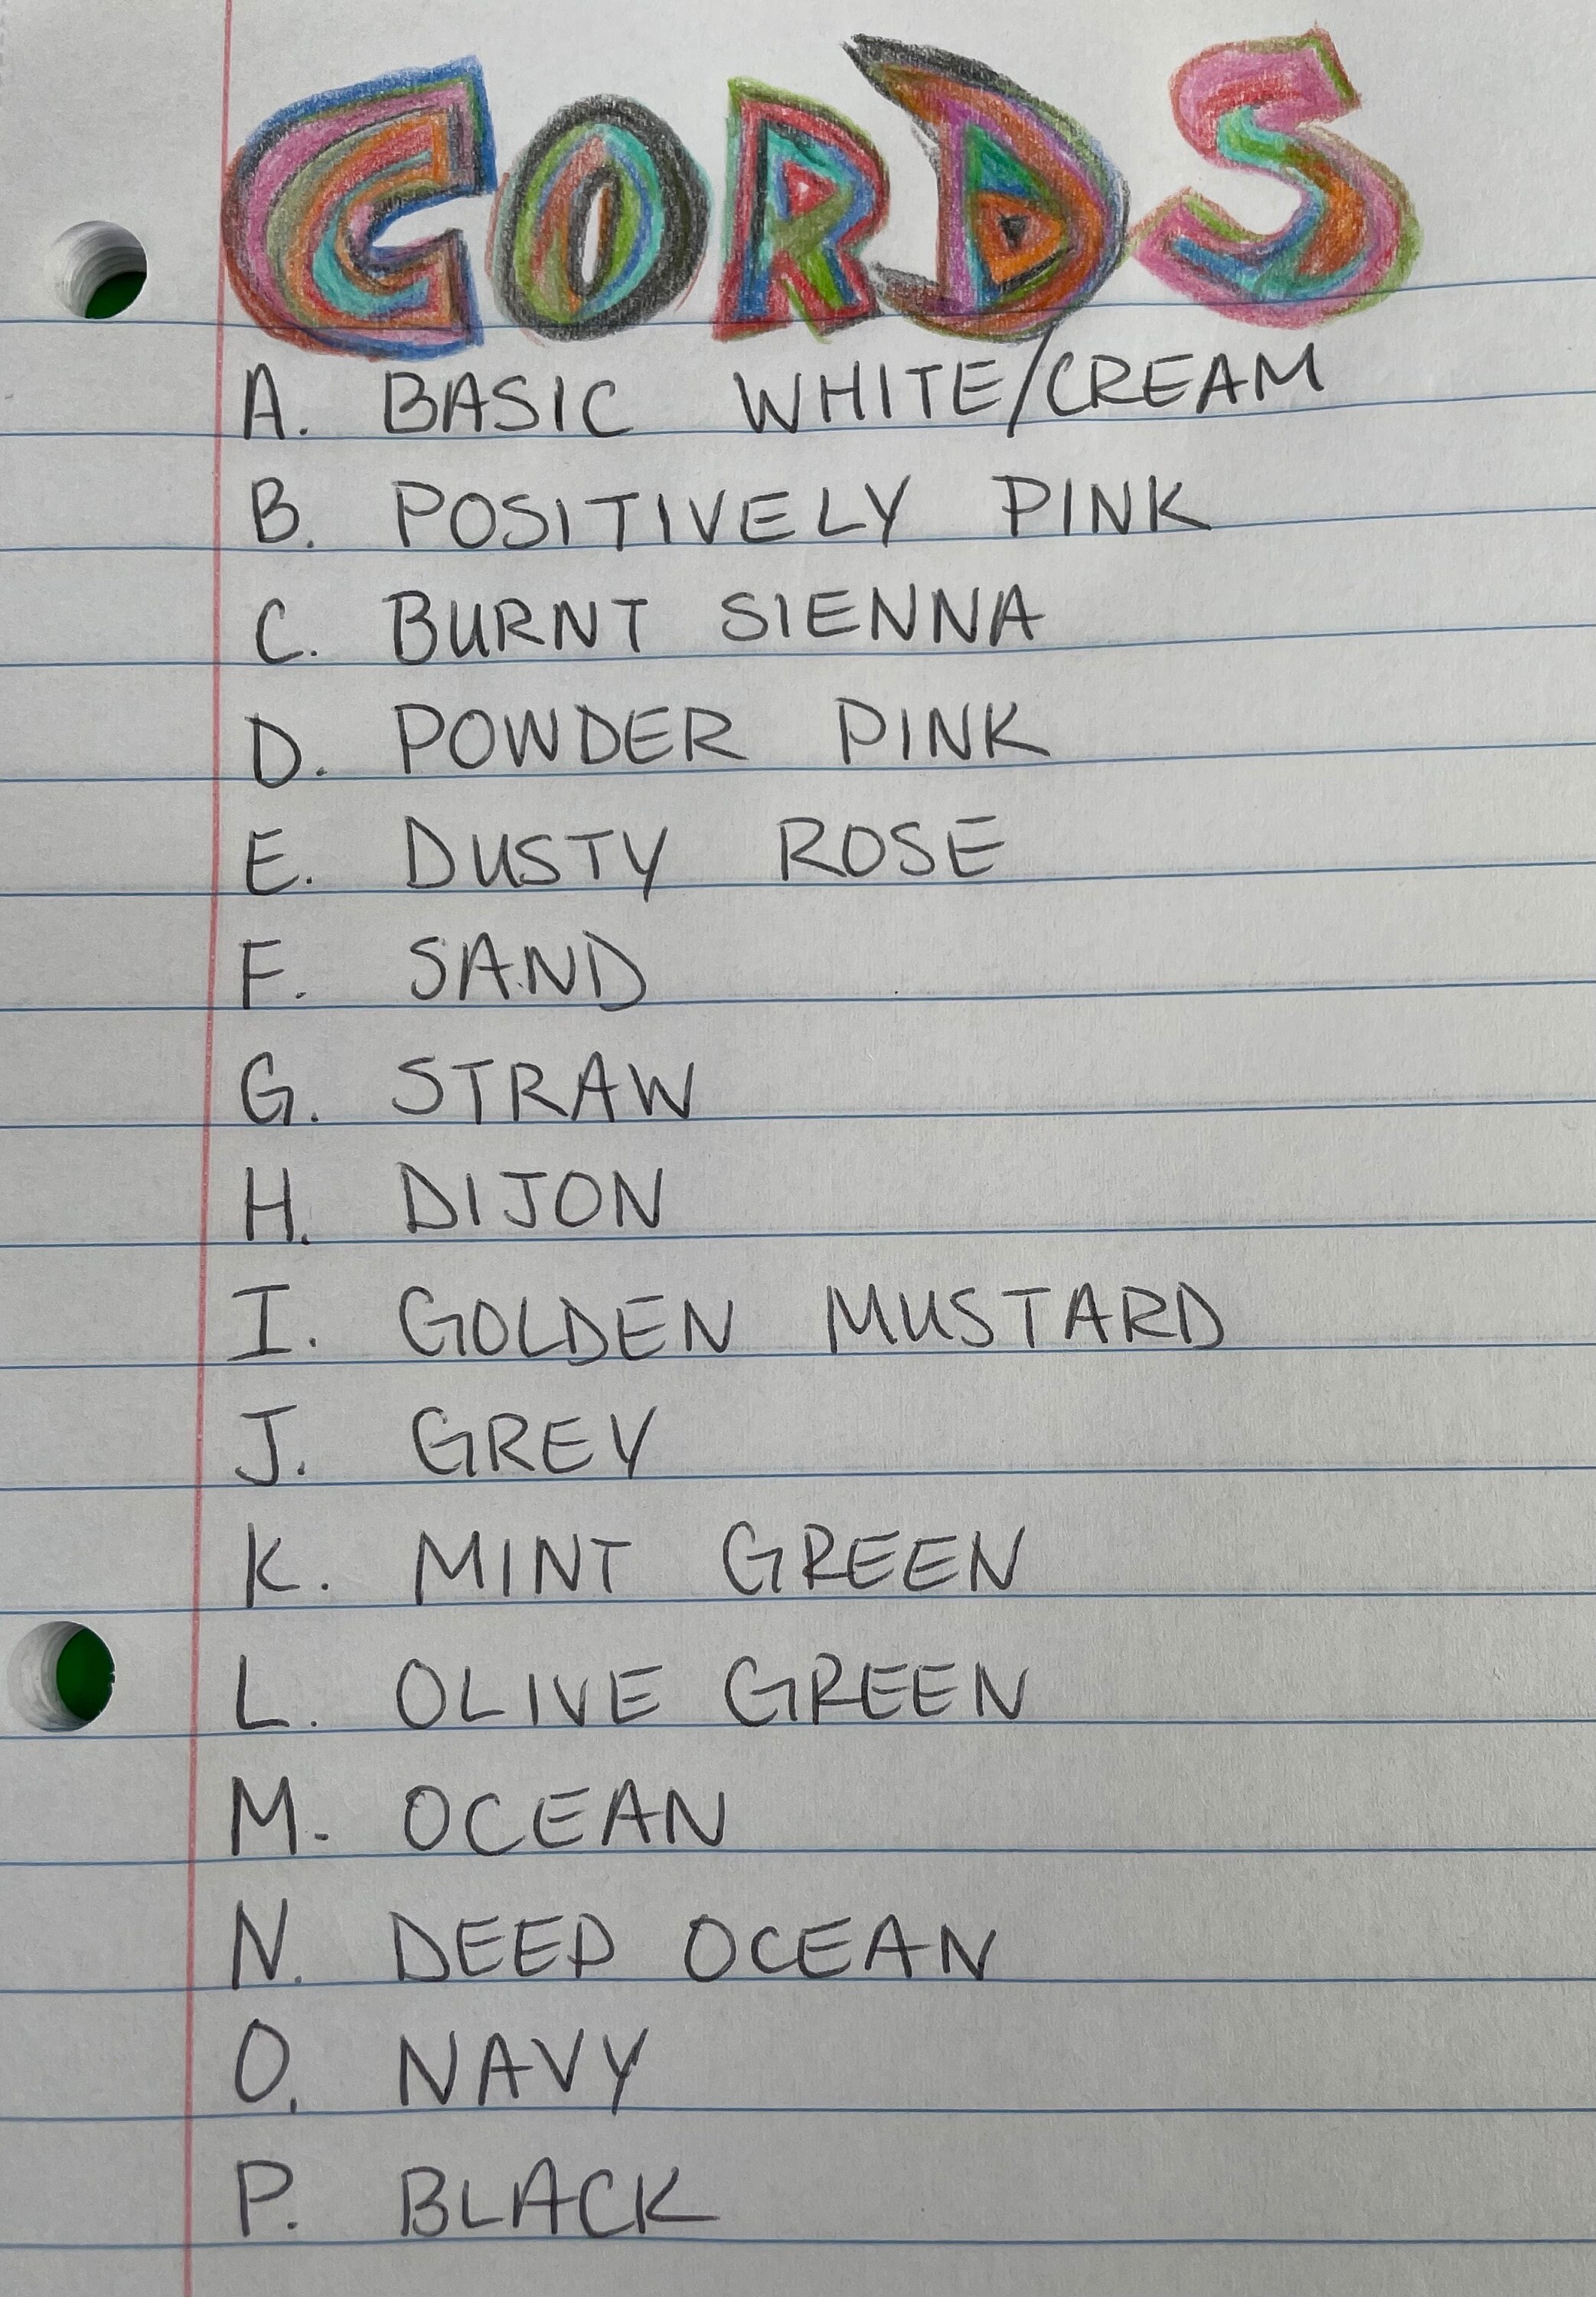 CORDS
A. BASIC WHITE/CREAM
B. POSITIVELY PINK
C. BURNT SIENNA
D. POWDER PINK
E. DUSTY ROSE
F. SAND
G. STRAW
H. DIJON
I. GOLDEN MUSTARD
J. GREY
K. MINT GREEN
L. OLIVE GREEN
M. OCEAN
N. DEEP OCEAN
O. NAVY
P. BLACK